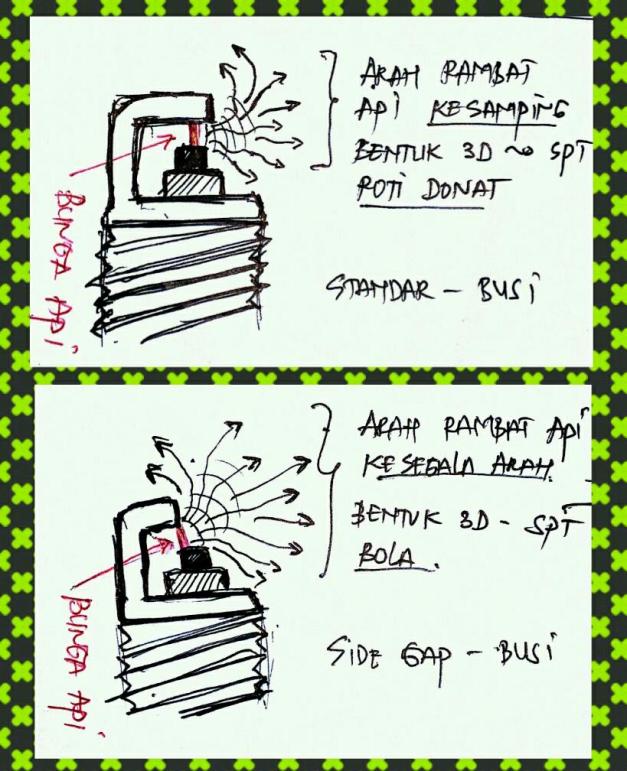 ARAH RAMBAT
API KESAMPING
BENTUK 3D ~ SPT
ROTI DONAT
BUNGA API
STANDAR - BUSI
ARAH RAMBAT API
KESEGALA ARAH.
BENTUK 3D - SPT
BOLA.
BUNGA API
SIDE GAP - BUSI